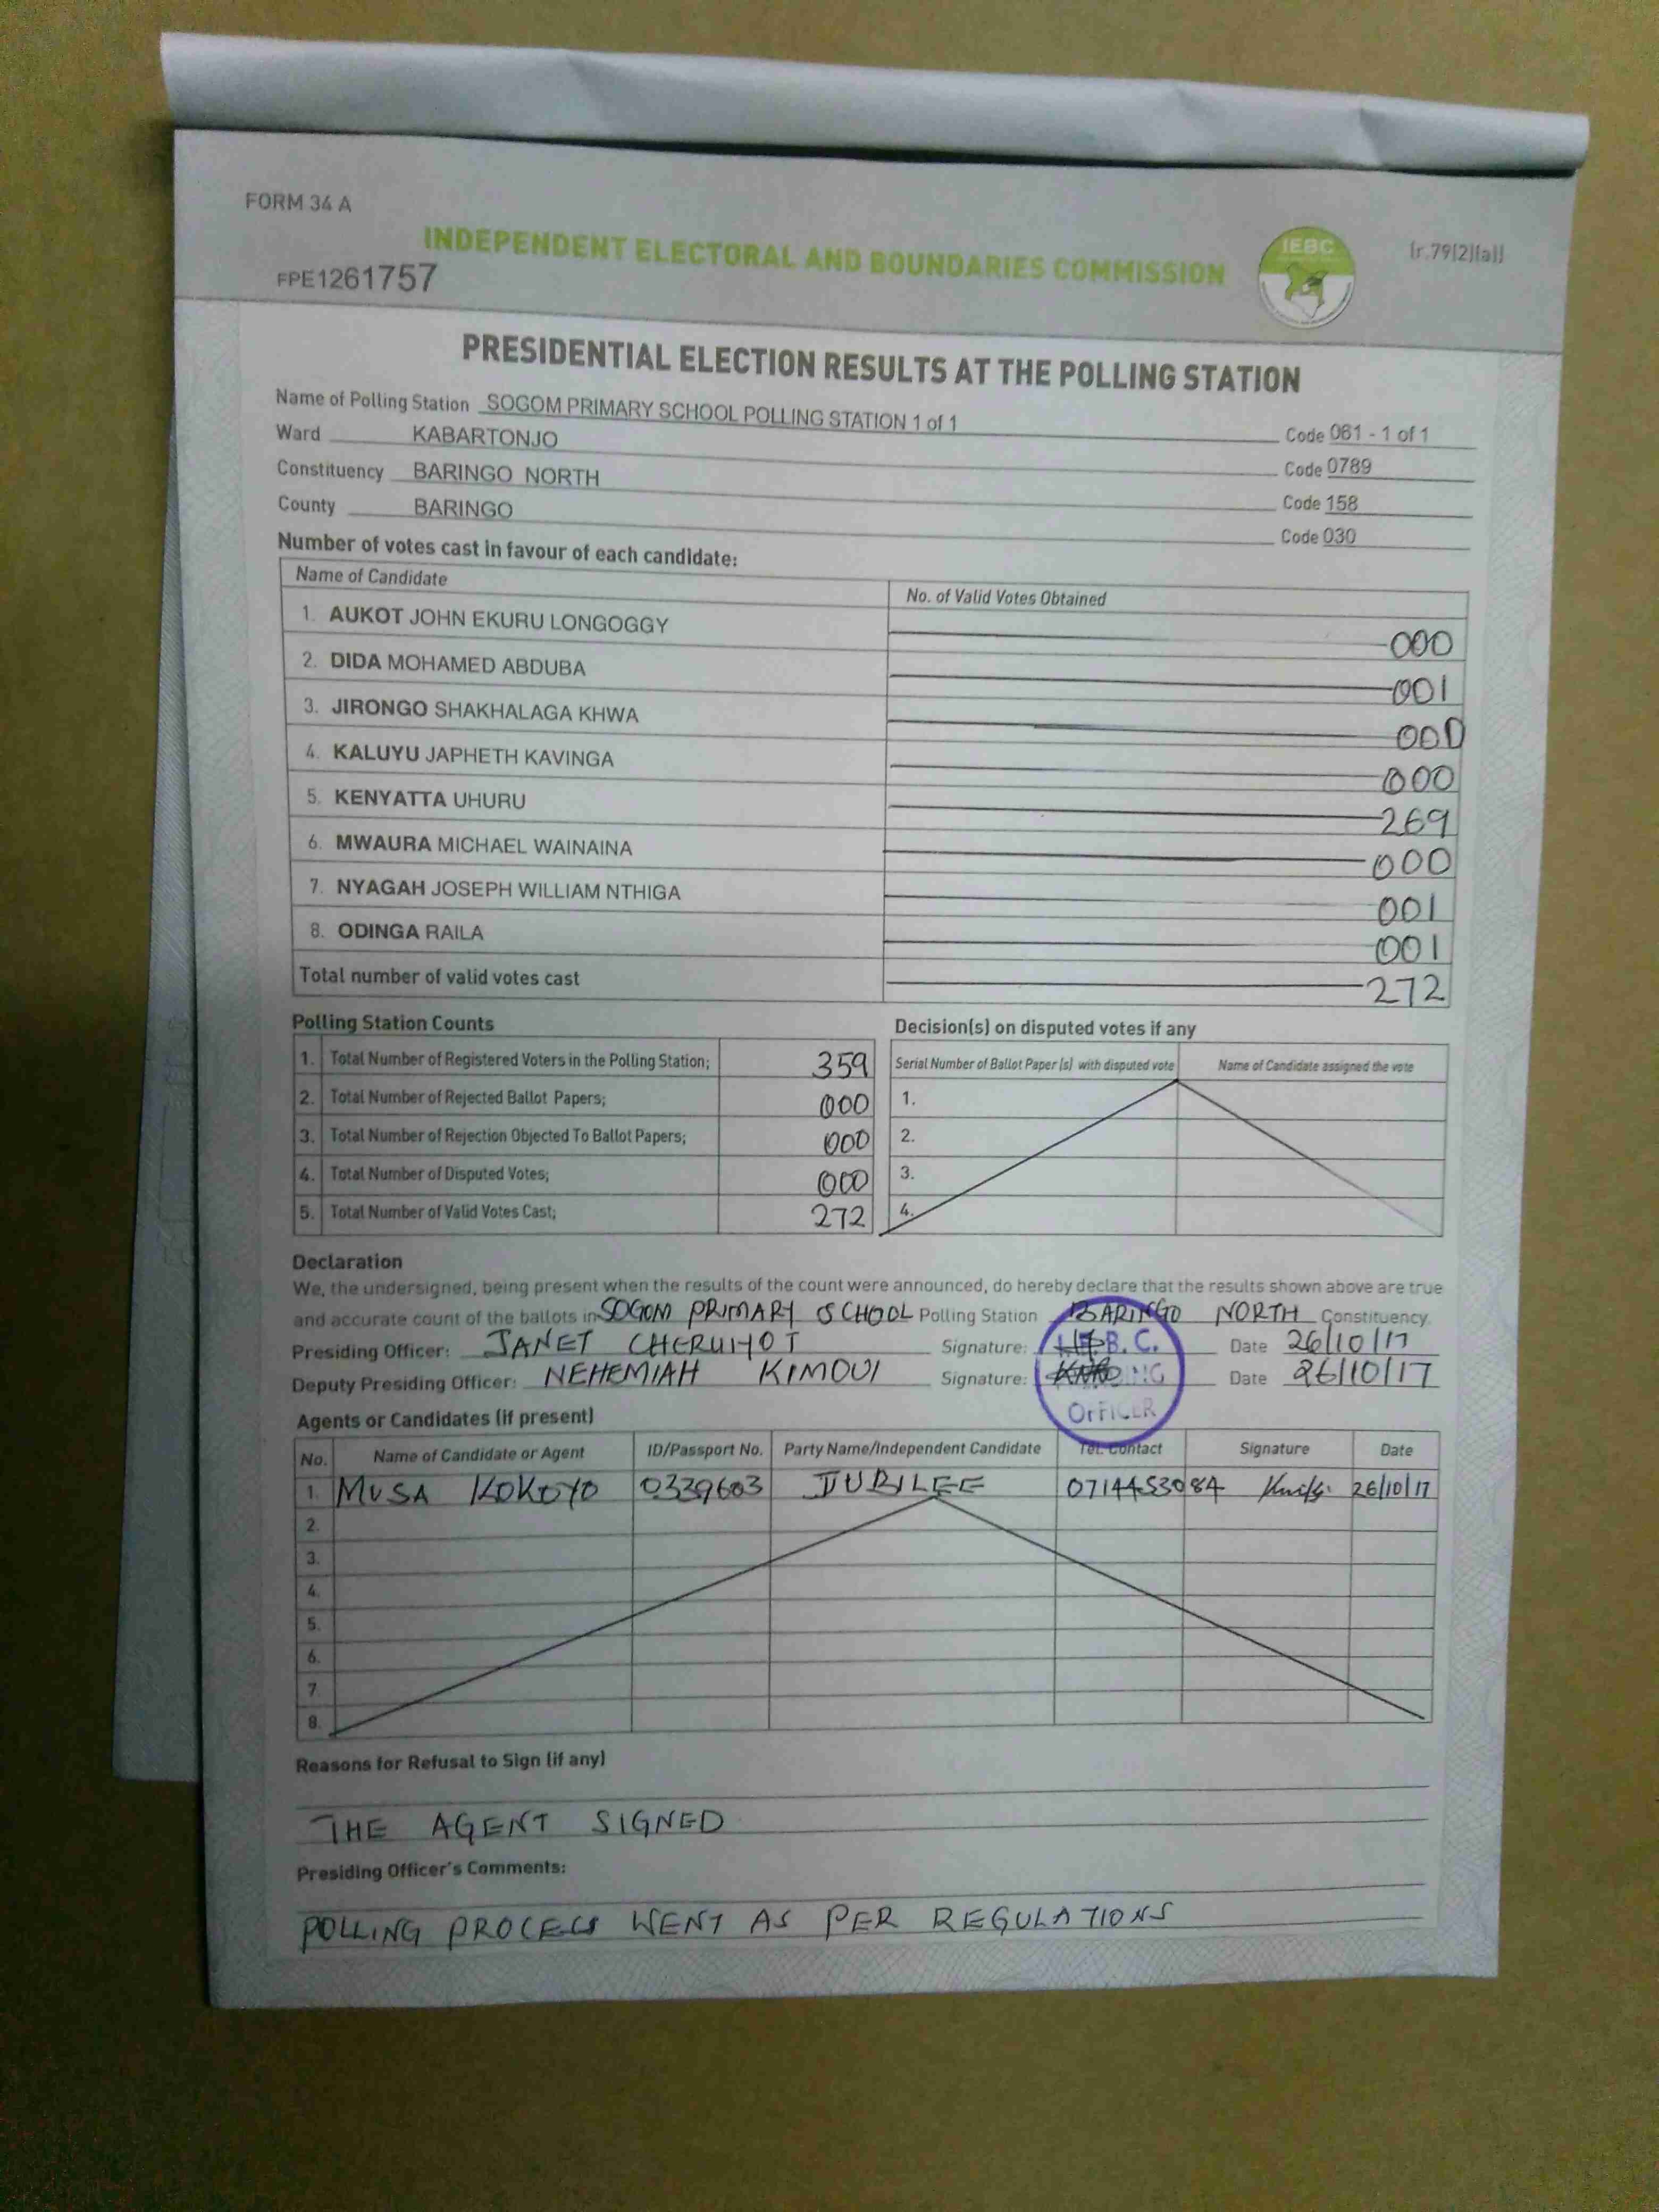 FORM 34 A
INDEPENDENT ELECTORAL AND BOUNDARIES COMMISSION
IEBC
(r.79(2)(a))
FPE1261757
PRESIDENTIAL ELECTION RESULTS AT THE POLLING STATION
Name of Polling Station SOGOM PRIMARY SCHOOL POLLING STATION 1 of 1 Code 061 - 1 of 1
Ward KABARTONJO Code 0789
Constituency BARINGO NORTH Code 158
County BARINGO Code 030
Number of votes cast in favour of each candidate:
Name of Candidate No. of Valid Votes Obtained
1. AUKOT JOHN EKURU LONGOGGY 000
2. DIDA MOHAMED ABDUBA 001
3. JIRONGO SHAKHALAGA KHWA 000
4. KALUYU JAPHETH KAVINGA 000
5. KENYATTA UHURU 269
6. MWAURA MICHAEL WAINAINA 000
7. NYAGAH JOSEPH WILLIAM NTHIGA 001
8. ODINGA RAILA 001
Total number of valid votes cast 272
Polling Station Counts
1. Total Number of Registered Voters in the Polling Station; 359
2. Total Number of Rejected Ballot Papers; 000
3. Total Number of Rejection Objected To Ballot Papers; 000
4. Total Number of Disputed Votes; 000
5. Total Number of Valid Votes Cast; 272
Decision(s) on disputed votes if any
Serial Number of Ballot Paper (s) with disputed vote Name of Candidate assigned the vote
1.
2.
3.
4.
Declaration
We, the undersigned, being present when the results of the count were announced, do hereby declare that the results shown above are true
and accurate count of the ballots in SOGOM PRIMARY SCHOOL Polling Station BARINGO NORTH Constituency
Presiding Officer: JANET CHERUIYOT Signature: Date 26/10/17
Deputy Presiding Officer: NEHEMIAH KIMOUI Signature: Date 26/10/17
OFFICER
Agents or Candidates (if present)
No. Name of Candidate or Agent ID/Passport No. Party Name/Independent Candidate Tel. Contact Signature Date
1. MUSA KOKOYO 0339603 JUBILEE 0714453084 26/10/17
2.
3.
4.
5.
6.
7.
8.
Reasons for Refusal to Sign (if any)
THE AGENT SIGNED
Presiding Officer's Comments:
POLLING PROCESS WENT AS PER REGULATIONS